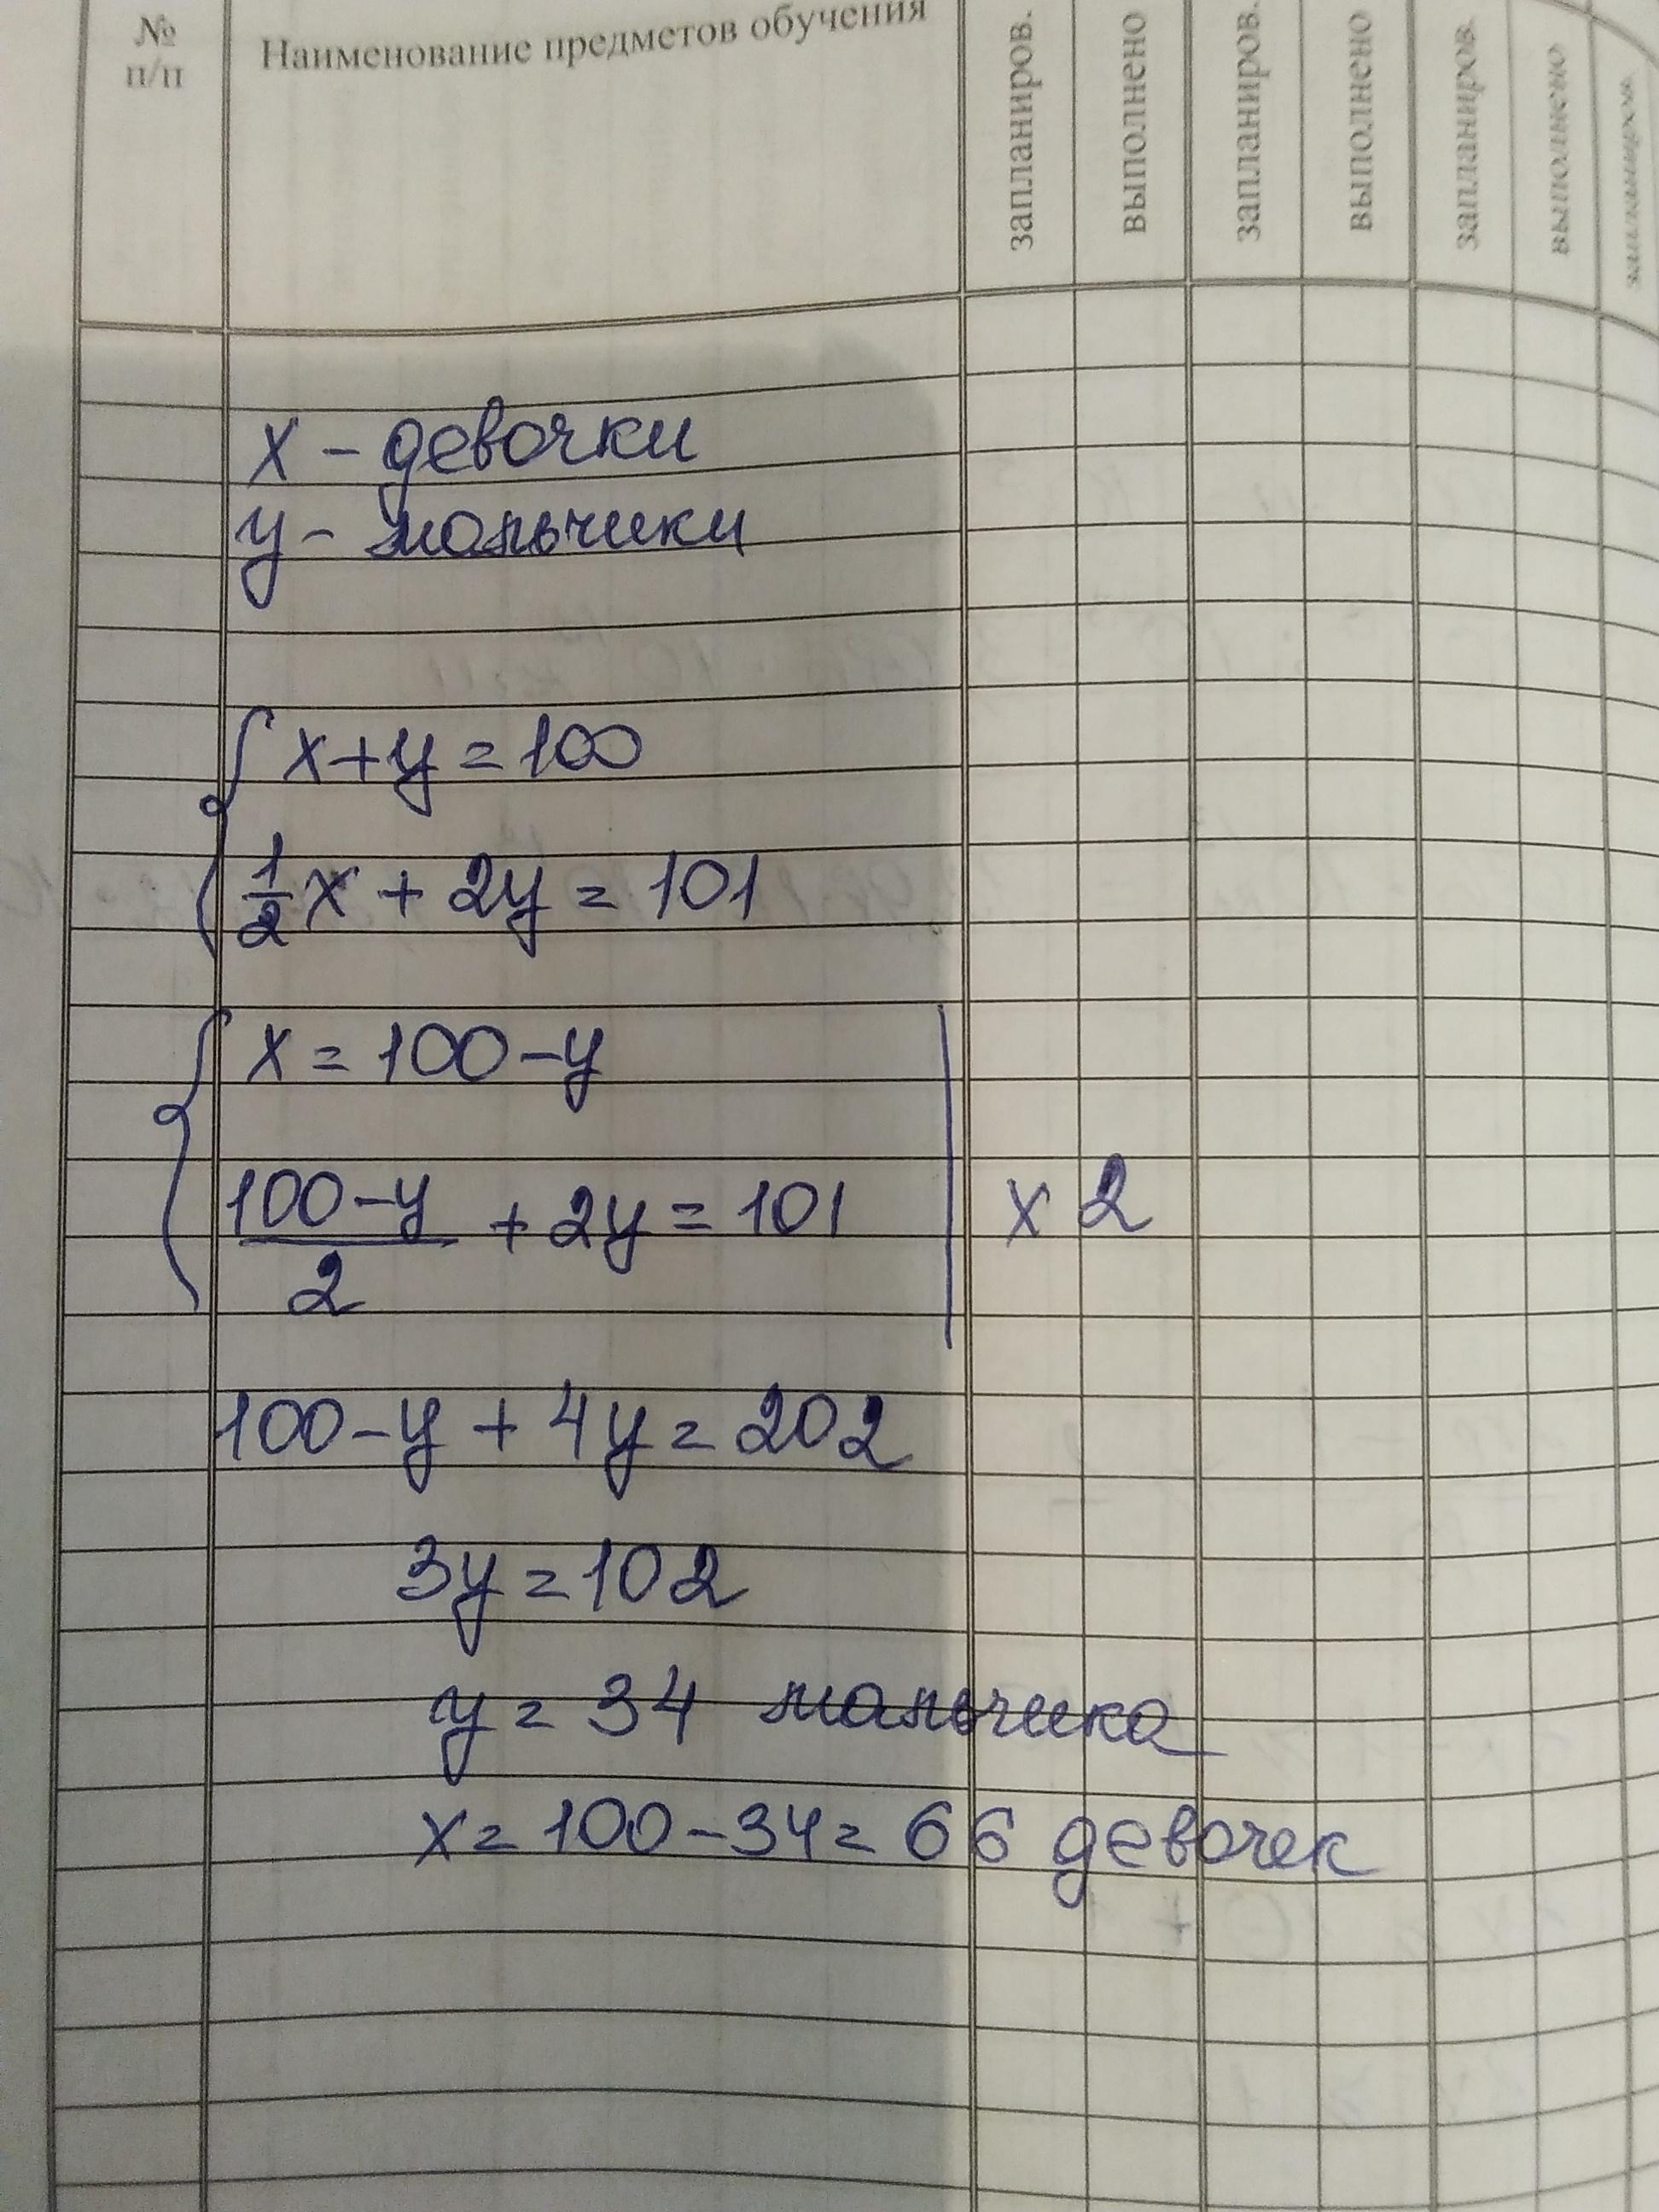 №
п/п
Наименование предметов обучения
запланиров.
выполнено
запланиров.
выполнено
запланиров.
выполнено
запланиров.
x – девочки
y – мальчики
x+y=100
1/2x + 2y = 101
x = 100 – y
(100 – y)/2 + 2y = 101
x 2
100 – y + 4y = 202
3y = 102
y = 34 мальчика
x = 100 – 34 = 66 девочек